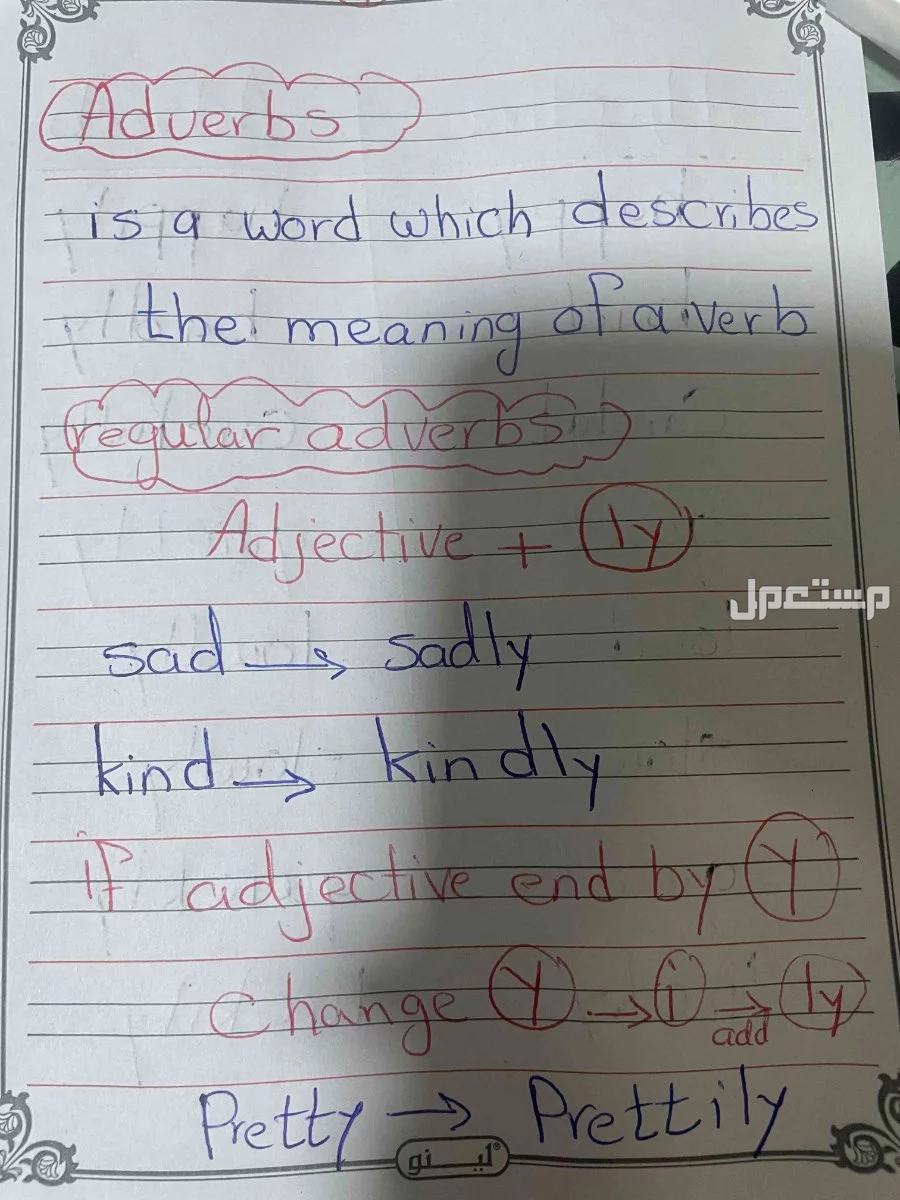 Adverbs
is a word which describes
the meaning of a verb
regular adverbs
Adjective + ly
مستعمل
sad → sadly
kind → kindly
if adjective end by y
change y → i → ly
add
Pretty → Prettily
لينو